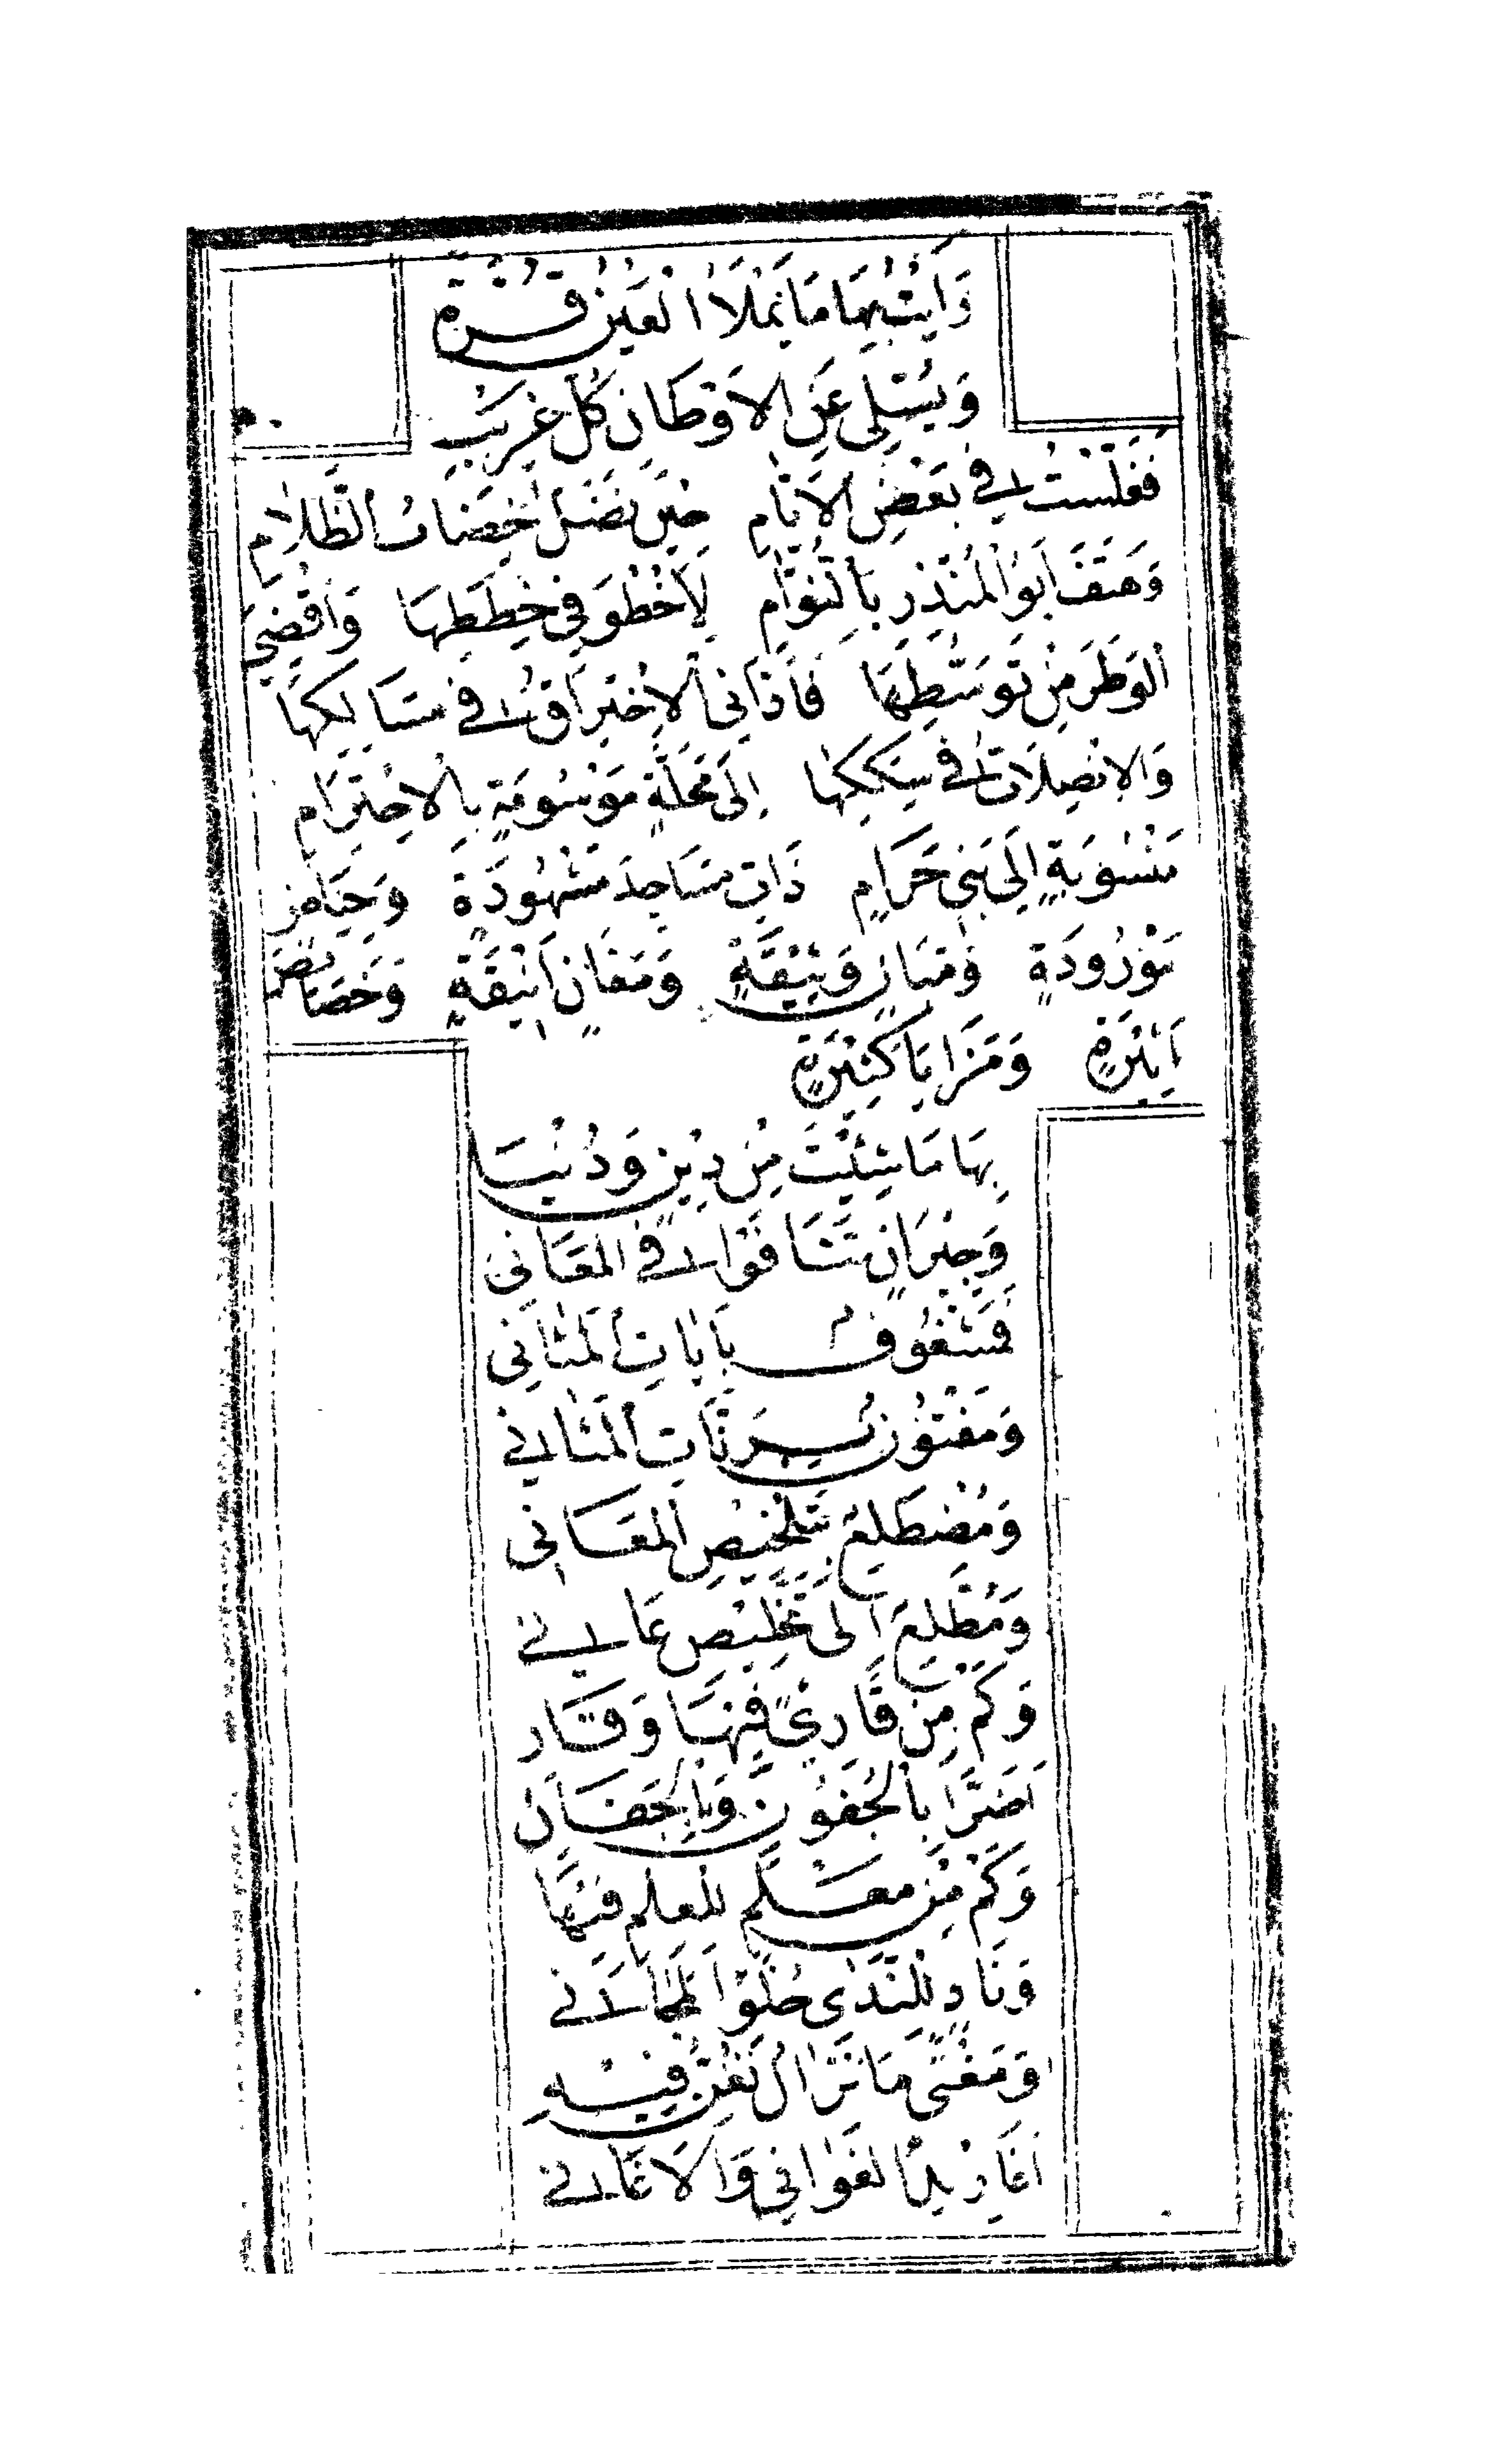 رَأَيْتُ بِهَا مَا يَمْلَأُ الْعَيْنَ قُرَّةً
وَيُسْلِي عَنِ الْأَوْطَانِ كُلَّ غَرِيبِ
فَغَلَّسْتُ فِي بَعْضِ الْأَيَّامِ حِينَ نَصَلَ خِضَابُ الظَّلَامِ
وَهَتَفَ أَبُو الْمُنْذِرِ بِالنُّوَّامِ لِأَخْطُوَ فِي خِطَطِهَا وَأَقْضِيَ
الْوَطَرَ مِنْ تَوَسُّطِهَا فَأَدَّانِي الْاِخْتِرَاقُ فِي مَسَالِكِهَا
وَالْاِنْصِلَاتُ فِي سِكَكِهَا إِلَى مَحَلَّةٍ مَوْسُومَةٍ بِالْاِحْتِرَامِ
مَنْسُوبَةٍ إِلَى بَنِي حَرَامٍ ذَاتِ مَسَاجِدَ مَشْهُودَةٍ وَحِيَاضٍ
مَوْرُودَةٍ وَمَبَانٍ وَثِيقَةٍ وَمَغَانٍ أَنِيقَةٍ وَخَصَائِصَ
أَثِيرَةٍ وَمَزَايَا كَثِيرَةٍ
بِهَا مَا شِئْتَ مِنْ دِينٍ وَدُنْيَا
وَجِيرَانٍ تَنَافَوْا فِي الْمَعَانِي
فَمَشْغُوفٌ بِآيَاتِ الْمَثَانِي
وَمَفْتُونٌ بِرَنَّاتِ الْمَثَانِي
وَمُضْطَلِعٌ بِتَلْخِيصِ الْمَعَانِي
وَمُطَّلِعٌ إِلَى تَخْلِيصِ عَانِي
وَكَمْ مِنْ قَارِئٍ فِيهَا وَقَارٍ
أَضَرَّا بِالْجُفُونِ وَبِالْجِفَانِ
وَكَمْ مِنْ مَعْلَمٍ لِلْعِلْمِ فِيهَا
وَنَادٍ لِلنَّدَى حُلْوِ الْمَجَانِي
وَمَغْنًى مَا تَزَالُ تَغَنُّ فِيهِ
أَغَارِيدُ الْغَوَانِي وَالْأَغَانِي